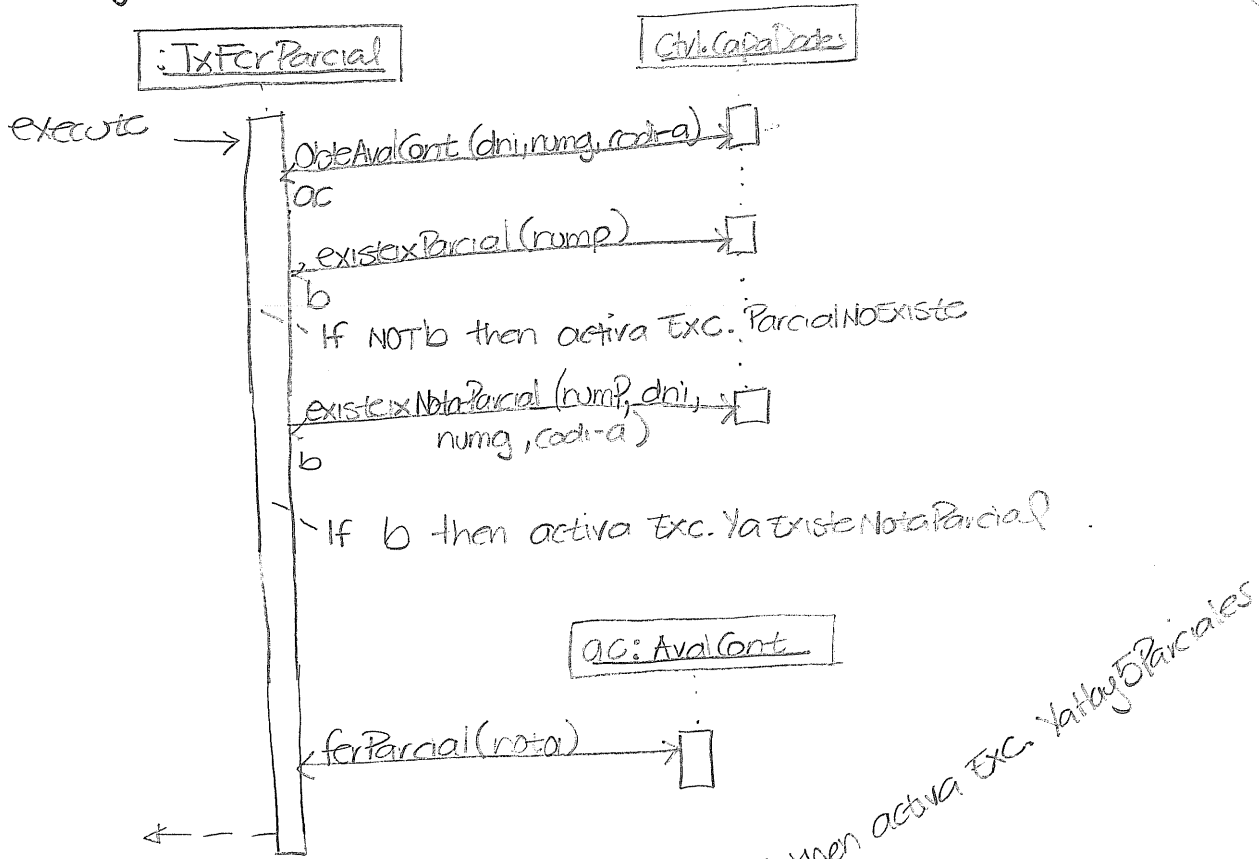 :TxFerParcial
Ctrl.CapaDades
execute
ObteAvalCont (dni, numg, codi-a)
ac
existeixParcial (nump)
b
If NOT b then activa Exc. ParcialNoExiste
existeixNotaParcial (numP, dni,
numg, codi-a)
b
If b then activa Exc. YaExisteNotaParcial
ac: AvalCont
ferParcial (nota)
then activa Exc. YaHay5Parciales